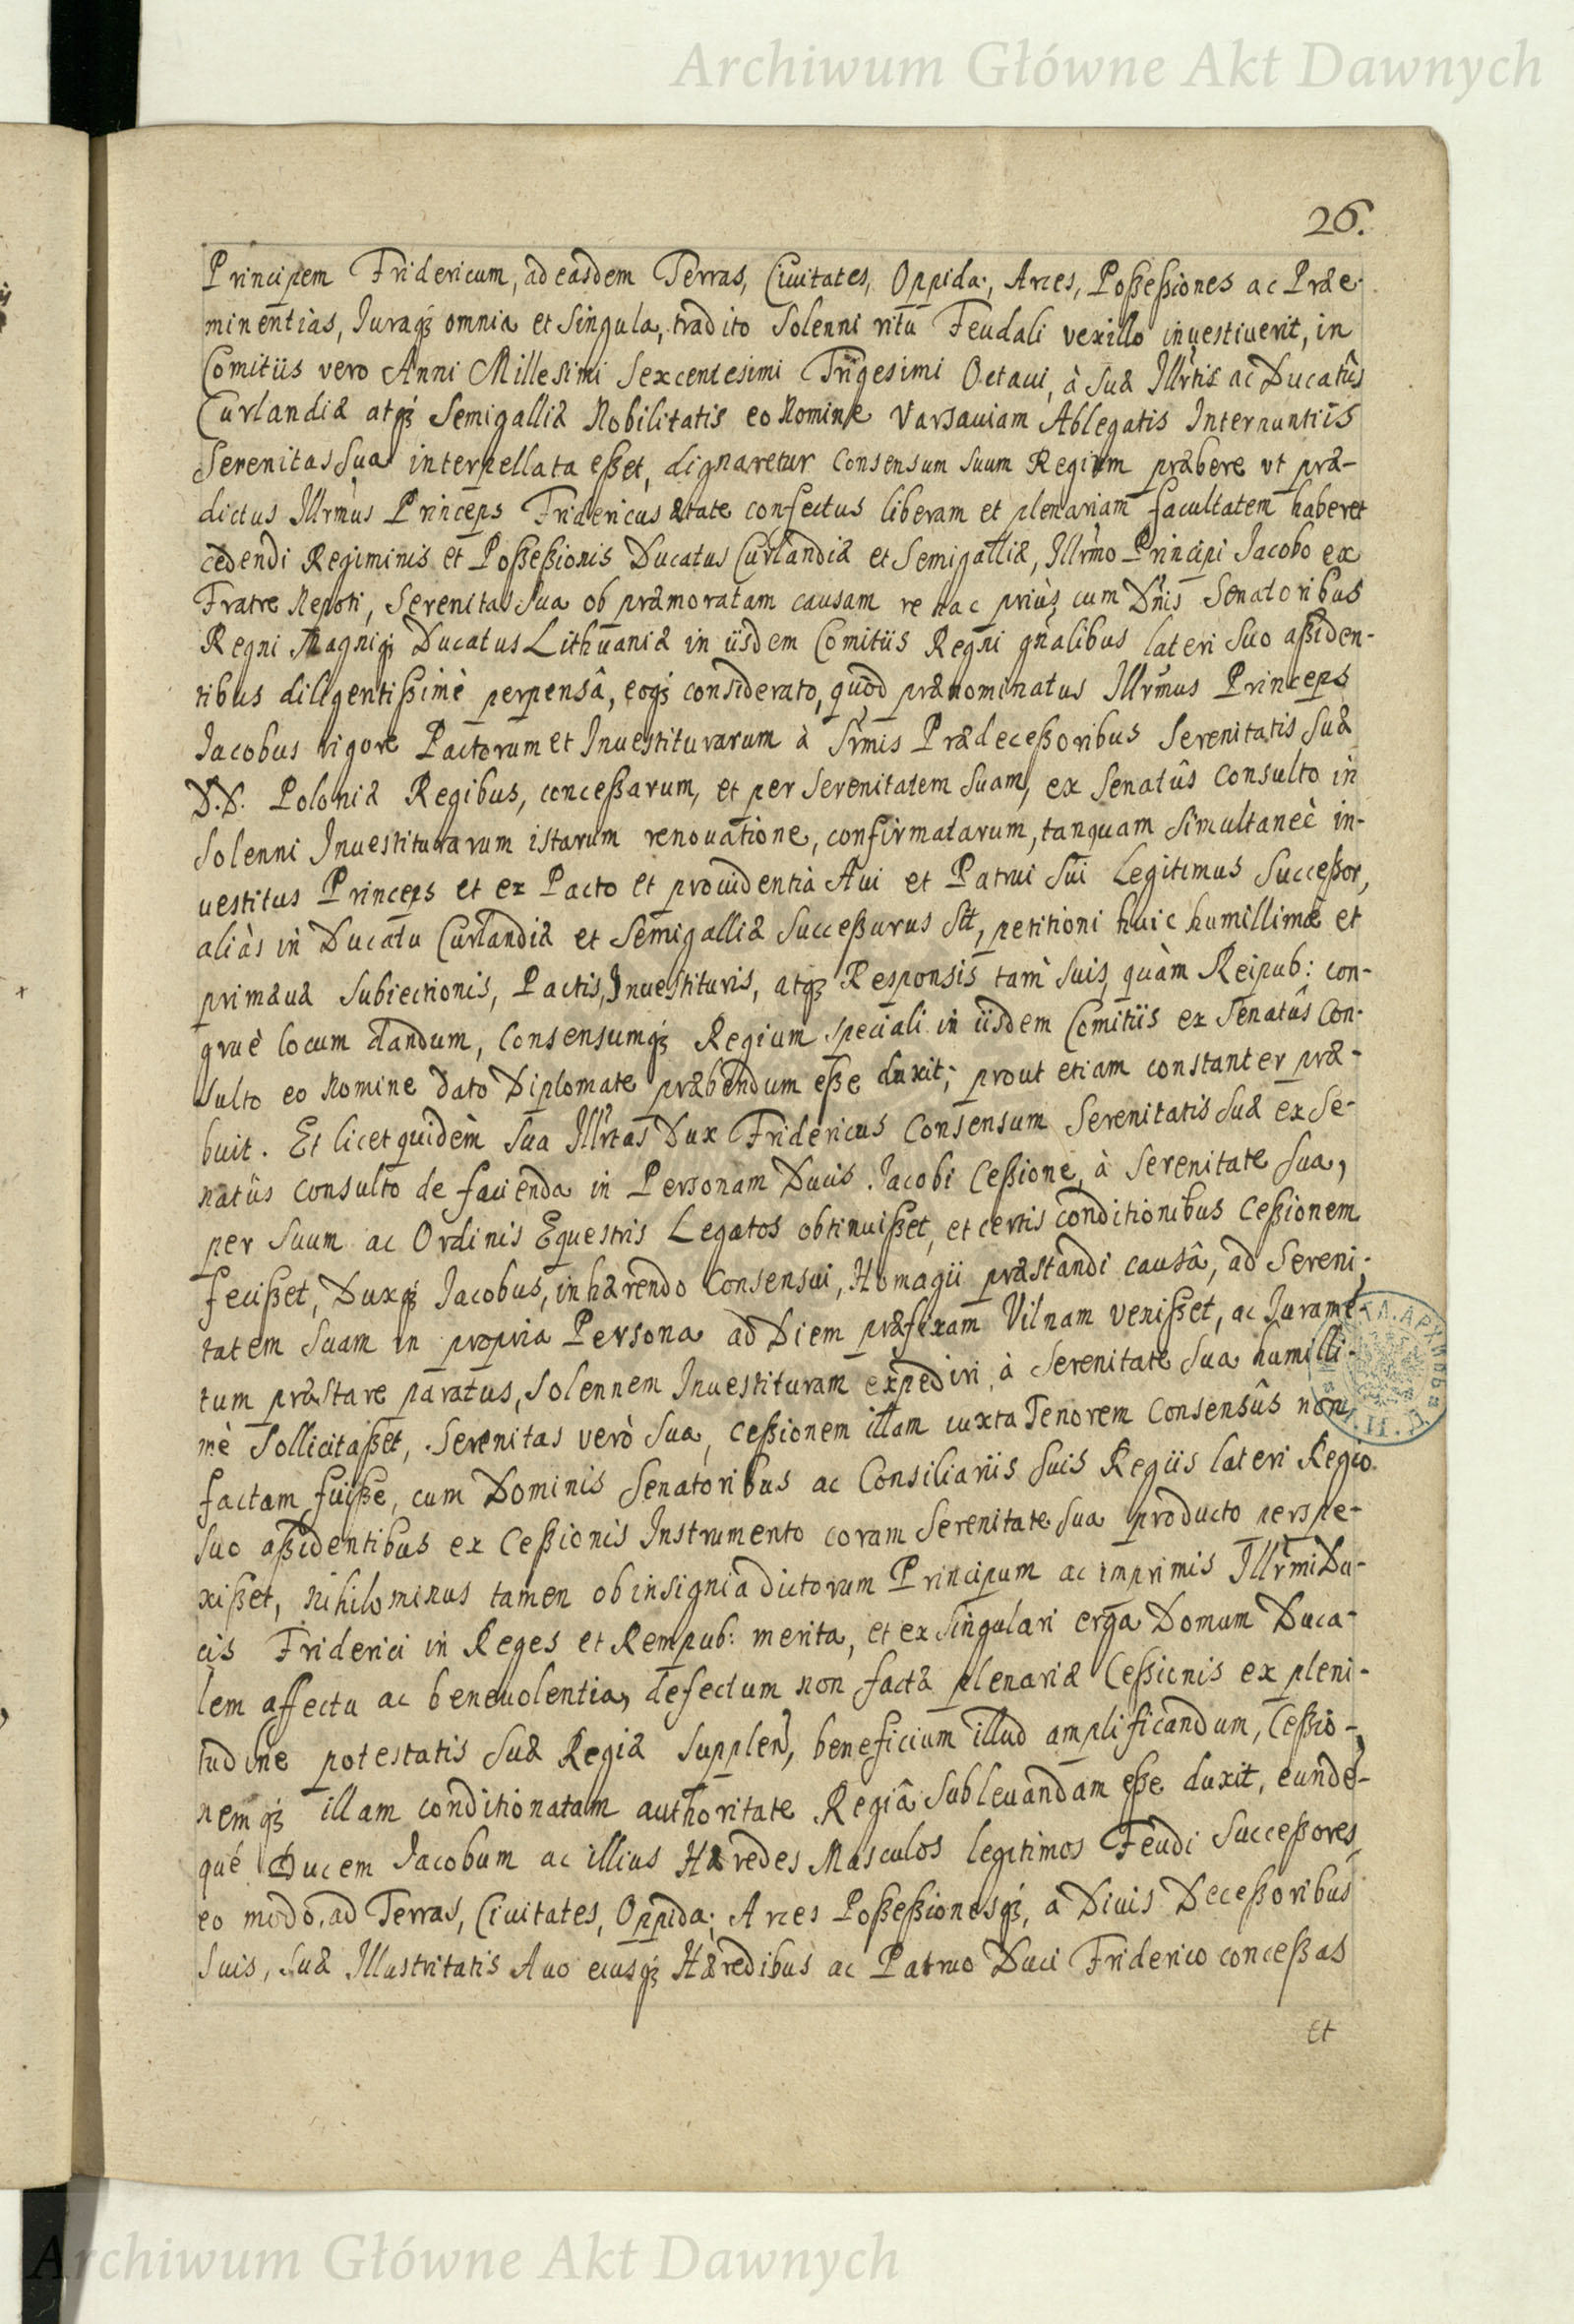 Archiwum Główne Akt Dawnych
26.
Principem Fridericum, ad easdem Terras, Ciuitates, Oppida, Arces, Poßeßiones ac Præe-
minentias, Juraq3 omnia et singula, tradito solenni ritu Feudali vexillo inuestiuerit, in
Comitiis vero Anni Millesimi Sexcentesimi Trigesimi Octaui, à Suæ Illrtis ac Ducatûs
Curlandiæ atq3 Semigalliæ Nobilitatis eo Nomine Varsauiam Ablegatis Internuntiis
Serenitas Sua interpellata eßet, dignaretur Consensum Suum Regium præbere vt præ-
dictus Illrmus Princeps Fridericus ætate confectus liberam et plenariam facultatem haberet
cedendi Regiminis et Poßeßionis Ducatus Curlandiæ et Semigalliæ, Illrmo Principi Jacobo ex
Fratre Nepoti, Serenitas Sua ob præmoratam causam re hac priùs cum Dnis Senatoribus
Regni Magniq3 Ducatus Lithuaniæ in iisdem Comitiis Regni gnalibus lateri Suo aßiden-
tibus diligentißimè perpensâ, eoq3 considerato, quod prænominatus Illrmus Princeps
Jacobus vigore Pactorum et Inuestiturarum à Srmis Prædeceßoribus Serenitatis Suæ
D.D. Poloniæ Regibus, conceßarum, et per Serenitatem Suam, ex Senatûs Consulto in
solenni Inuestiturarum istarum renouatione, confirmatarum, tanquam simultaneè in-
uestitus Princeps et ex Pacto et prouidentià Aui et Patrui sui Legitimus Succeßor,
aliàs in Ducatu Curlandiæ et Semigalliæ Succeßurus sit, petitioni huic humillimæ et
primæuæ Subiectionis, Pactis, Inuestituris, atq3 Responsis tam Suis, quàm Reipub: con-
gruè locum dandum, Consensumq3 Regium speciali in iisdem Comitiis ex Senatûs Con-
sulto eo Nomine dato Diplomate præbendum eße duxit; prout etiam constanter præ-
buit. Et licet quidem Sua Illrtas Dux Fridericus Consensum Serenitatis Suæ ex Se-
natûs consulto de facienda in Personam Ducis Jacobi Ceßione, à Serenitate Sua,
per Suum ac Ordinis Equestris Legatos obtinuißet, et certis conditionibus Ceßionem
fecißet, Duxq3 Jacobus, inhærendo Consensui, Homagii præstandi causâ, ad Sereni-
tatem Suam in propria Persona ad Diem præfixam Vilnam venißet, ac Jurame-
tum præstare paratus, Solennem Inuestituram expediri à Serenitate Sua humilli-
mè Sollicitaßet, Serenitas verò Sua, Ceßionem illam iuxta Tenorem Consensûs non
factam fuiße, cum Dominis Senatoribus ac Consiliariis Suis Regiis lateri Regio
Suo aßidentibus ex Ceßionis Instrumento coram Serenitate Sua producto perspe-
xißet, nihilominus tamen ob insignia dictorum Principum ac imprimis Illrmi Du-
cis Friderici in Reges et Rempub: merita, et ex singulari erga Domum Duca-
lem affectu ac beneuolentia, defectum non factæ plenariæ Ceßionis ex pleni-
tudine potestatis Suæ Regiæ supplen, beneficium illud amplificandum, Ceßio-
nemq3 illam conditionatam authoritate Regiâ Subleuandam eße duxit, eunde-
què Ducem Jacobum ac illius Hæredes Masculos legitimos Feudi Succeßores,
eo modo, ad Terras, Ciuitates, Oppida; Arces Poßeßionesq3, à Diuis Deceßoribus
Suis, Suæ Illustritatis Auo eiusq3 Hæredibus ac Patruo Duci Friderico conceßas
Et
Archiwum Główne Akt Dawnych